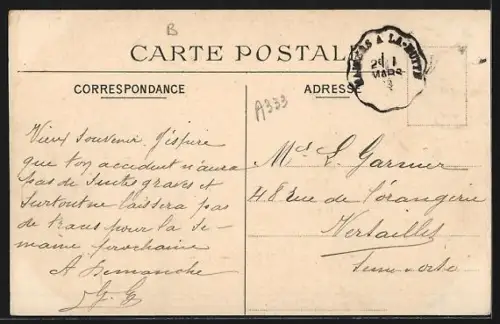 B
CARTE POSTALE
MAMERS A LA-HUTTE
29
MARS
CORRESPONDANCE
ADRESSE
A333
Vieux souvenir. J'espère
que ton accident n'aura
pas de suites graves et
surtout ne laissera pas
de traces pour la se-
maine prochaine
A Dimanche
G. G.
L. Garnier
48 rue de l'orangerie
Versailles
Seine-et-Oise